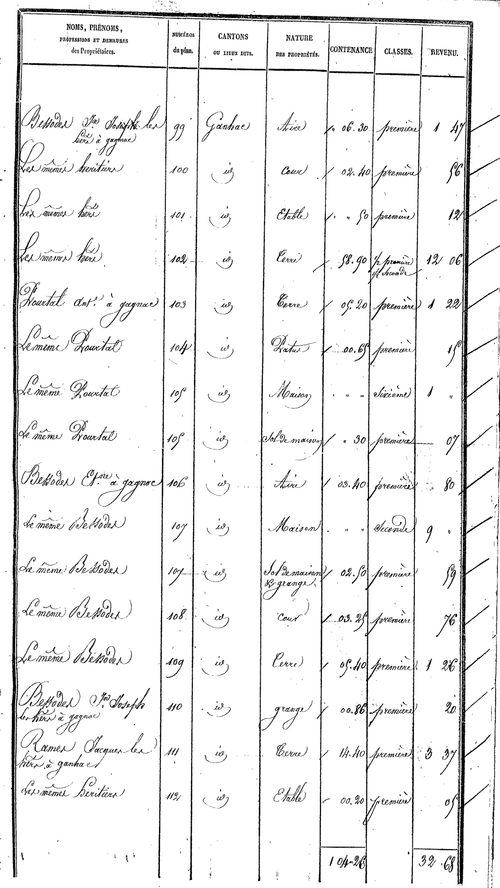 NOMS, PRÉNOMS, PROFESSIONS ET DEMEURES des Propriétaires. NUMÉROS du plan. CANTONS OU LIEUX DITS. NATURE DES PROPRIÉTÉS. CONTENANCE. CLASSES. REVENU.
Bessodes Jn Joseph les 99 Ganhac Aire 06.30 première 1 47
hérs à gagnac
Les mêmes héritiers 100 id cour 02.40 première 56
Les mêmes hérs 101 id Etable " 50 première 12
Les mêmes hérs 102 id Terre 58.90 première 12 06
Seconde
Pourtal ant. à gagnac 103 id Terre 05.20 première 1 22
Le même Pourtal 104 id Patus 00.65 première 15
Le même Pourtal 105 id Maison " " Sixième 1 "
Le même Pourtal 105 id Sol de maison " 30 première 07
Bessodes Et.ne à gagnac 106 id Aire 03.40 première 80
Le même Bessodes 107 id Maison " " Seconde 9 "
Le même Bessodes 107 id Sol de maison 02.50 première 59
& grange
Le même Bessodes 108 id cour 03.25 première 76
Le même Bessodes 109 id Terre 05.40 première 1 26
Bessodes Jn Joseph 110 id grange 00.86 première 20
les hérs à gagnac
Rames Jacques les 111 id Terre 14.40 première 3 37
hérs à ganhac
Les mêmes héritiers 112 id Etable 00.20 première 05
1 04-26 32.68